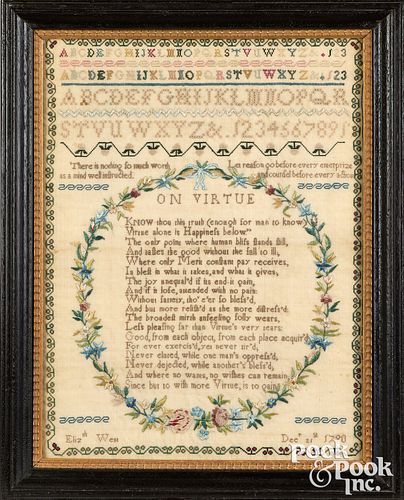 ABCDEFGHIJKLMNOPQRSTVUWXYZ&123
ABCDEFGHIJKLMNOPQRSTVUWXYZ&123
ABCDEFGHIJKLMNOPQR
STVUWXYZ&1234566789
There is nothing so much worth
as a mind well instructed.
Let reason go before every enterprize
and counsel before every action
ON VIRTUE
KNOW thou this truth (enough for man to know)
Virtue alone is Happiness below
The only point where human bliss stands still,
And tastes the good without the fall to ill,
Where only Merit constant pay receives,
Is blest in what it takes, and what it gives,
The joy unequal'd if its end it gain,
And if it lose, attended with no pain:
Without satiety, tho' e'er so bless'd,
And but more relish'd as the more distress'd:
The broadest mirth unfeeling folly wears,
Less pleasing far than Virtue's very tears;
Good, from each object, from each place acquir'd
For ever exercis'd, yet never tir'd,
Never elated, while one man's oppress'd,
Never dejected, while another's bless'd,
And where no wants, no wishes can remain,
Since but to wish more Virtue, is to gain
Eliz th West
Dec r 21 st 1790
Pook
& Pook
Inc.